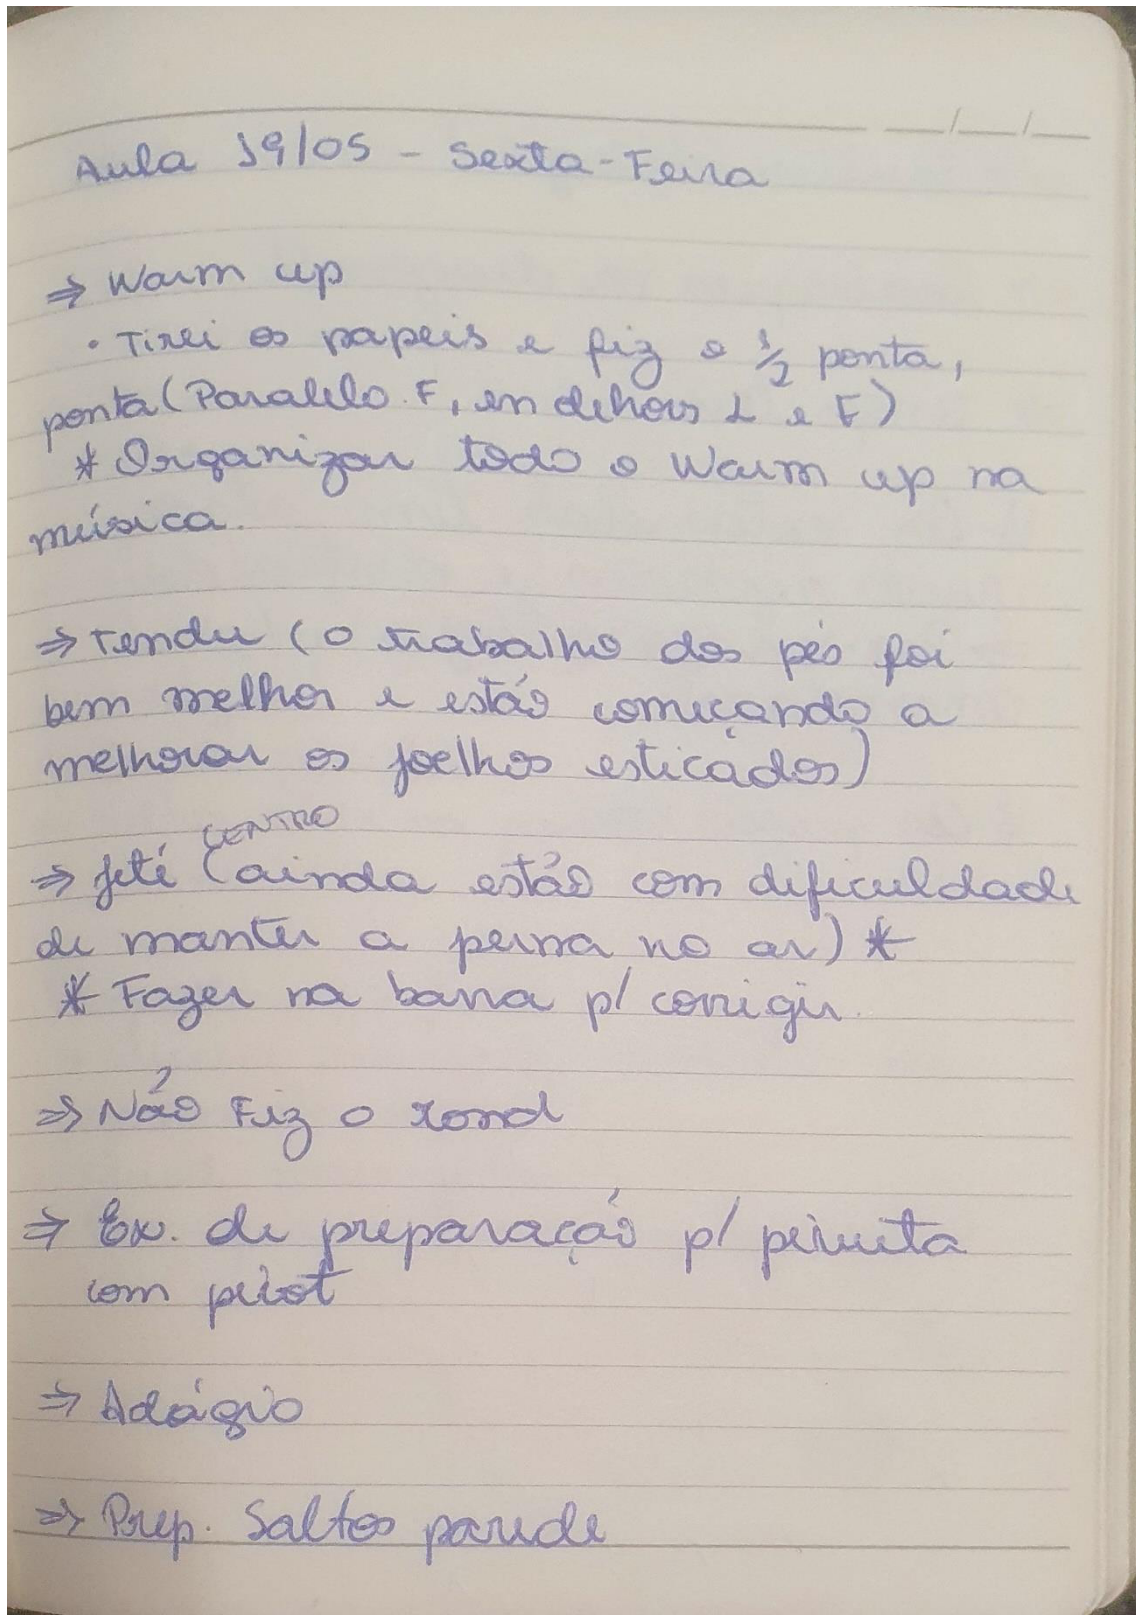 Aula 19/05 - Sexta-Feira
⇒ Warm up
• Tirei os papeis e fiz o 1/2 ponta,
ponta (Paralelo. F, en dehors L e F)
* Organizar todo o Warm up na
música.
⇒ Tendu (o trabalho dos pés foi
bem melhor e estão começando a
melhorar os joelhos esticados)
CENTRO
⇒ Jeté (ainda estão com dificuldade
de manter a perna no ar) *
* Fazer na barra p/ corrigir.
⇒ Não Fiz o rond
⇒ Ex. de preparação p/ pirueta
com pivot
⇒ Adágio
⇒ Prep. Saltos parede